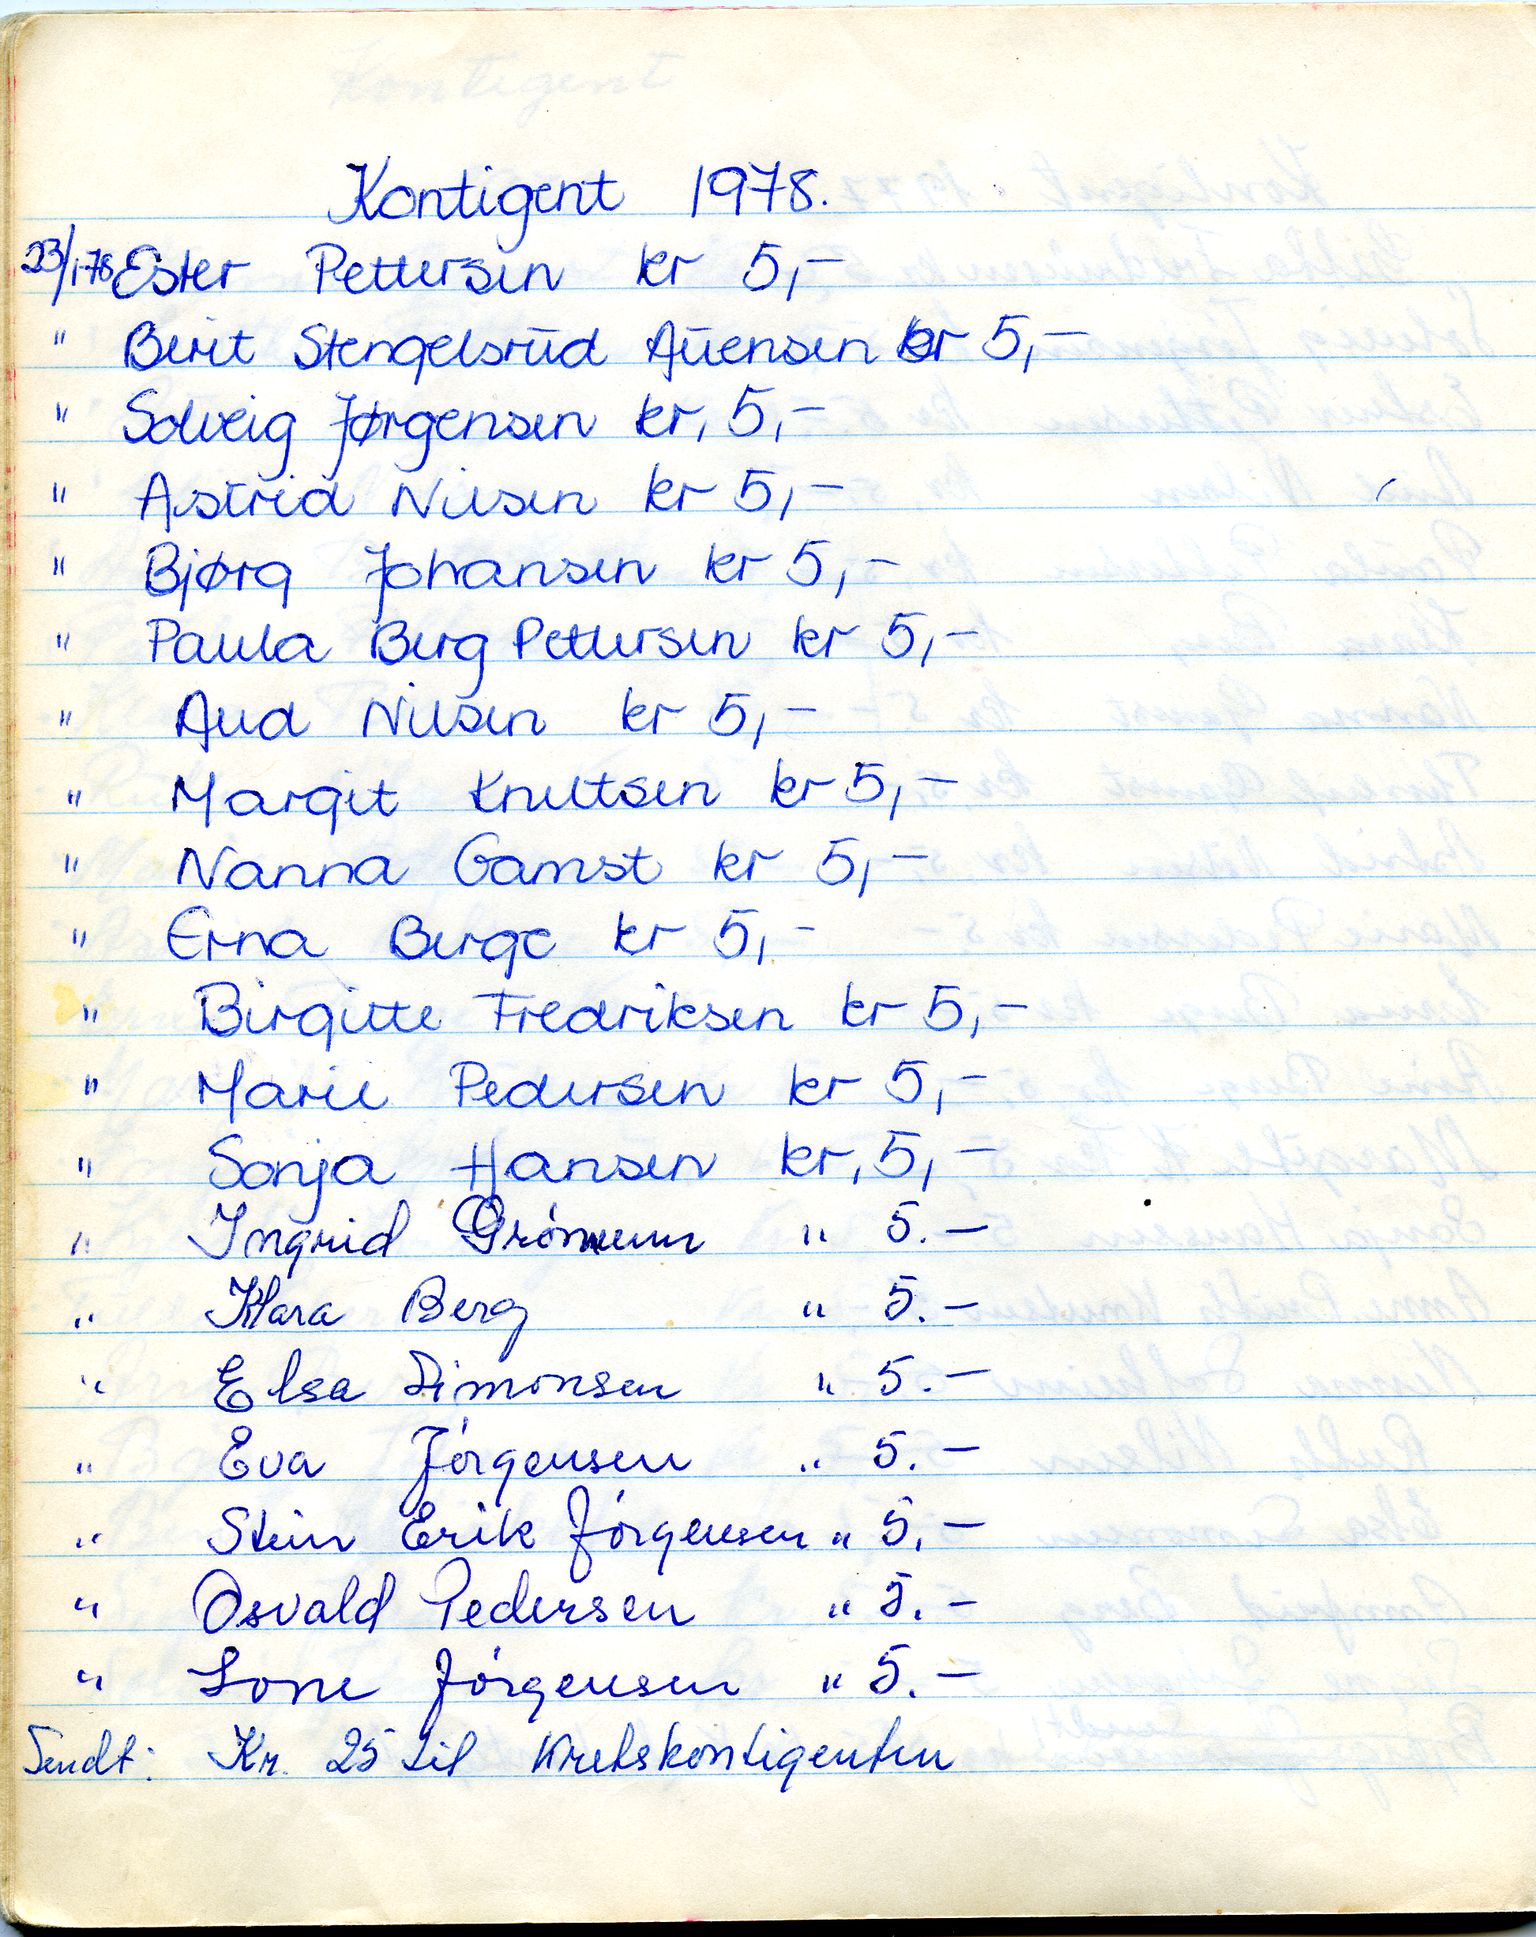 Kontigent 1978.
23/1-78 Ester Pettersen kr 5,-
" Berit Stengelsrud Auensen kr 5,-
" Solveig Jørgensen kr, 5,-
" Astrid Nilsen kr 5,-
" Bjørg Johansen kr 5,-
" Paula Berg Pettersen kr 5,-
" Aud Nilsen kr 5,-
" Margit Knutsen kr 5,-
" Nanna Gamst kr 5,-
" Erna Berge kr 5,-
" Birgitte Fredriksen kr 5,-
" Marie Pedersen kr 5,-
" Sonja Hansen kr, 5,-
" Ingrid " 5.-
" Klara Berg " 5.-
" Elsa Simonsen " 5.-
" Eva Jórgensen " 5.-
" Stein Erik Jórgensen " 5.-
" Osvald Pedersen " 5.-
" Lone Jórgensen " 5.-
Sendt: Kr. 25 til Kretskontigenten